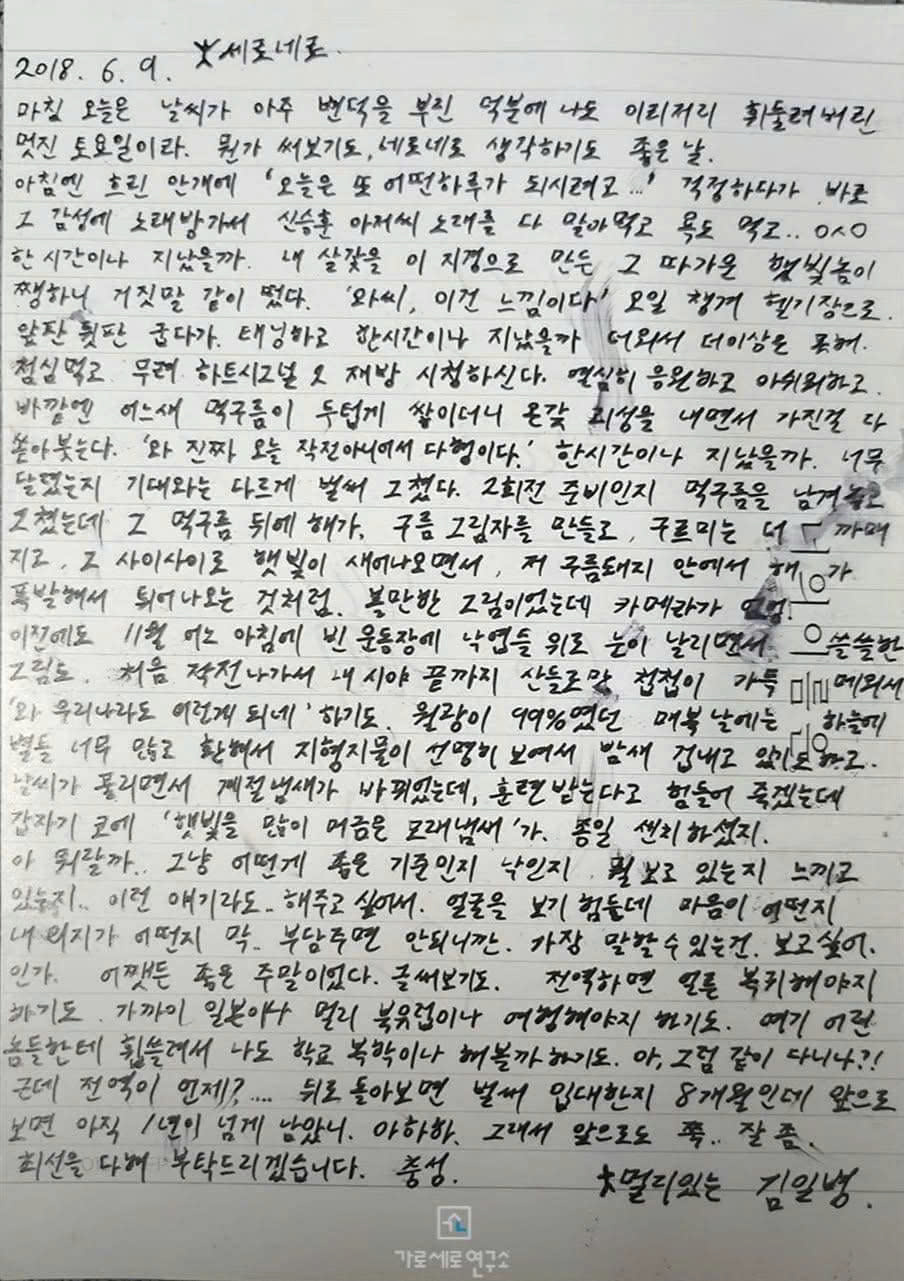 ★세로네로.
2018. 6. 9.
마침 오늘은 날씨가 아주 변덕을 부린 덕분에 나도 이리저리 휘둘려버린
멋진 토요일이라. 뭔가 써보기도, 네로네로 생각하기도 좋은 날.
아침엔 흐린 안개에 '오늘은 또 어떤하루가 되시려고...' 걱정하다가 바로
그 감성에 노래방가서 신승훈 아저씨 노래를 다 말아먹고 욕도 먹고.. ㅇㅅㅇ
한 시간이나 지났을까. 내 살갗을 이 지경으로 만든 그 따가운 햇빛놈이
쨍하니 거짓말 같이 떴다. '와씨, 이건 느낌이다' 오일 챙겨 헬기장으로.
앞판 뒷판 굽다가. 태닝하고 한시간이나 지났을까 더워서 더이상은 못해.
점심먹고 무려 하트시그널 2 재방 시청하신다. 열심히 응원하고 아쉬워하고.
바깥엔 어느새 먹구름이 두텁게 쌓이더니 온갖 괴성을 내면서 가진걸 다
쏟아붓는다. '와 진짜 오늘 작전아니어서 다행이다.' 한시간이나 지났을까. 너무
달렸는지 기대와는 다르게 벌써 그쳤다. 2회전 준비인지 먹구름을 남겨놓고
그쳤는데 그 먹구름 뒤에 해가, 구름 그림자를 만들고, 구르미는 더 까매
지고, 그 사이사이로 햇빛이 새어나오면서, 저 구름돼지 안에서 해가
폭발해서 튀어나오는 것처럼. 볼만한 그림이었는데 카메라가
이전에도 11월 어느 아침에 빈 운동장에 낙엽들 위로 눈이 날리면서 쓸쓸한
그림도. 처음 작전나가서 내 시야 끝까지 산들로만 첩첩이 가득 메워서
'와 우리나라도 이런게 되네' 하기도. 월광이 99%였던 매복 날에는 하늘에
별들 너무 많고 환해서 지형지물이 선명히 보여서 밤새 겁내고 있기도하고..
날씨가 풀리면서 계절냄새가 바뀌었는데, 훈련받는다고 힘들어 죽겠는데
갑자기 코에 '햇빛을 많이 머금은 모래냄새'가. 종일 센치하셨지.
아 뭐랄까.. 그냥 어떤게 좋은 기준인지 낙인지 뭘 보고 있는지 느끼고
있는지.. 이런 얘기라도.. 해주고 싶어서. 얼굴을 보기 힘든데 마음이 어떤지
내 의지가 어떤지 막.. 부담주면 안되니깐. 가장 말할수있는건. 보고싶어.
인가. 어쨋든 좋은 주말이었다. 글써보기도. 전역하면 얼른 복귀해야지
하기도. 가까이 일본이나 멀리 북유럽이나 여행해야지 하기도. 여기 어린
놈들한테 휩쓸려서 나도 학교 복학이나 해볼까하기도. 아, 그럼 같이 다니나?!
근데 전역이 언제?.... 뒤로 돌아보면 벌써 입대한지 8개월인데 앞으로
보면 아직 1년이 넘게 남았니. 아하하. 그래서 앞으로도 쭉.. 잘 좀.
최선을 다해 부탁드리겠습니다. 충성.
★멀리있는 김일병.
가로세로연구소